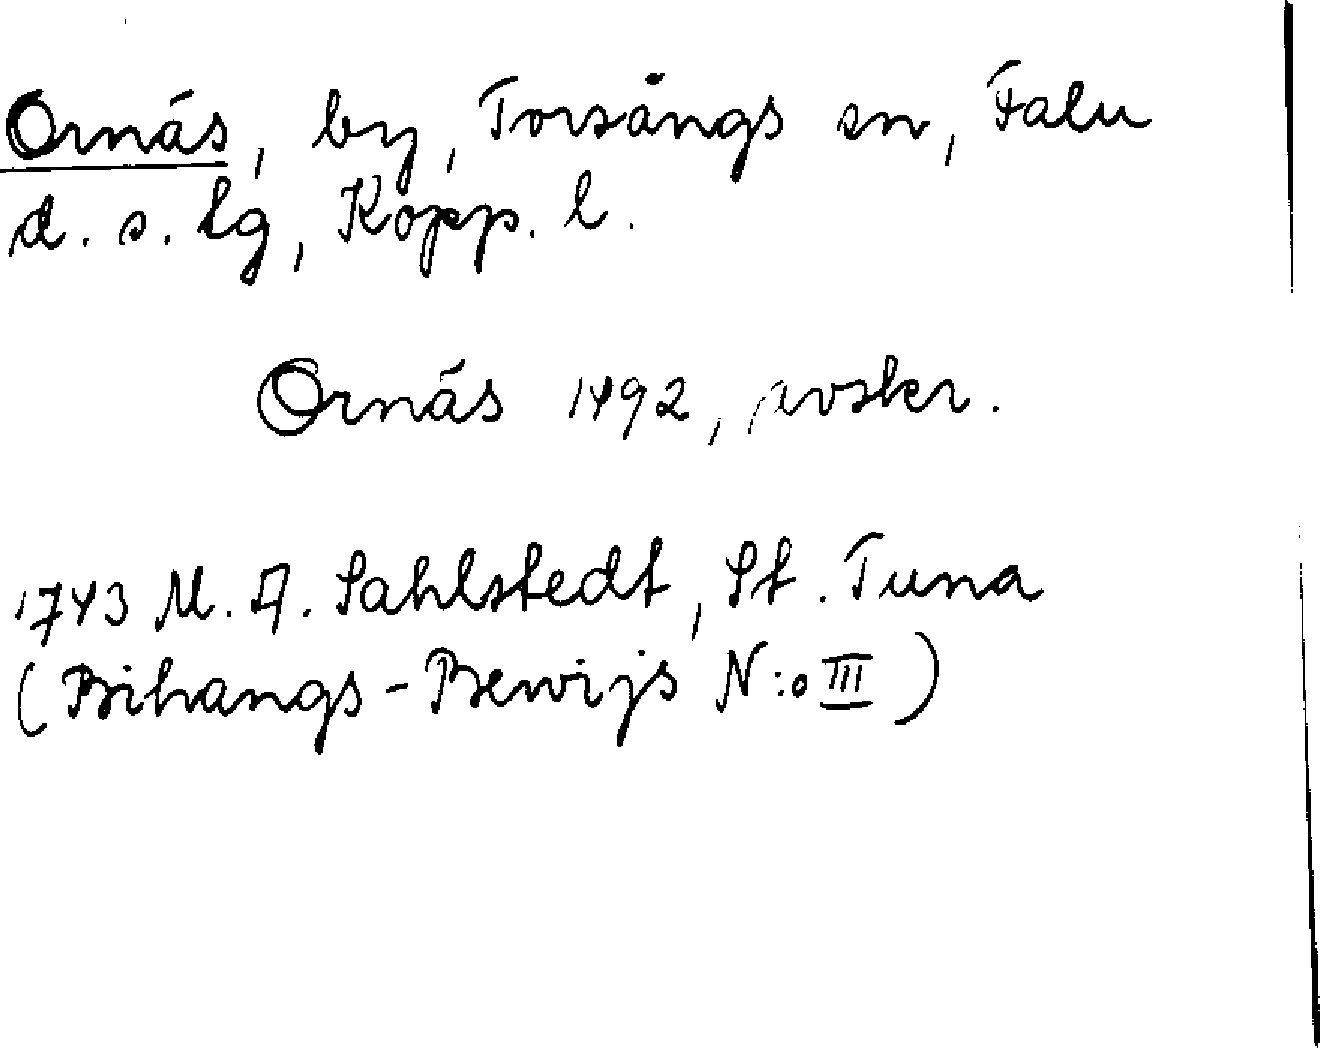 Ornäs, by, Torsångs sn, Falu
d. s. lg, Kopp. l.
Ornäs 1492, avskr.
1743 M. A. Sahlstedt, St. Tuna
(Bihangs-Bewijs N:o III)